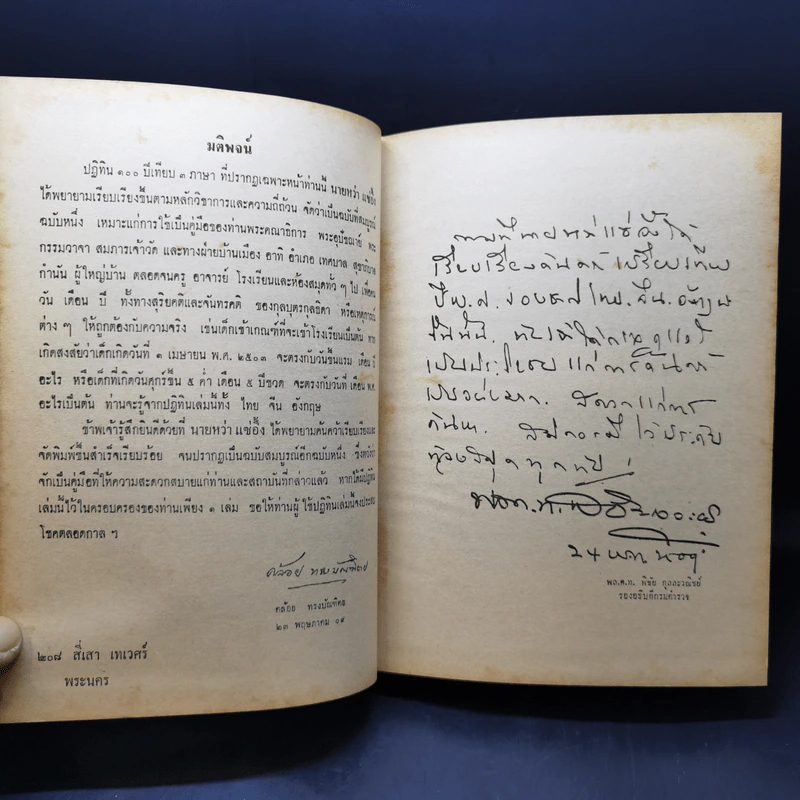 มติพจน์
ปฏิทิน ๑๐๐ ปีเทียบ ๓ ภาษา ที่ปรากฏเฉพาะหน้าท่านนี้ นายหว่า แซ่อึ้ง
ได้พยายามเรียบเรียงขึ้นตามหลักวิชาการและความถี่ถ้วน จัดว่าเป็นฉบับที่สมบูรณ์
ฉบับหนึ่ง เหมาะแก่การใช้เป็นคู่มือของท่านพระคณาธิการ พระอุปัชฌาย์ พระ
กรรมวาจา สมภารเจ้าวัด และทางฝ่ายบ้านเมือง อาทิ อำเภอ เทศบาล สุขาภิบาล
กำนัน ผู้ใหญ่บ้าน ตลอดจนครู อาจารย์ โรงเรียนและห้องสมุดทั่ว ๆ ไป เพื่อค้น
วัน เดือน ปี ทั้งทางสุริยคติและจันทรคติ ของกุลบุตรกุลธิดา หรือเหตุการณ์
ต่าง ๆ ให้ถูกต้องกับความจริง เช่นเด็กเข้าเกณฑ์ที่จะเข้าโรงเรียนเป็นต้น หาก
เกิดสงสัยว่าเด็กเกิดวันที่ ๑ เมษายน พ.ศ. ๒๕๐๓ จะตรงกับวันขึ้นแรม เดือน ปี
อะไร หรือเด็กที่เกิดวันศุกร์ขึ้น ๕ ค่ำ เดือน ๕ ปีชวด จะตรงกับวันที่ เดือน พ.ศ.
อะไรเป็นต้น ท่านจะรู้จากปฏิทินเล่มนี้ทั้ง ไทย จีน อังกฤษ
ข้าพเจ้ารู้สึกยินดีด้วยที่ นายหว่า แซ่อึ้ง ได้พยายามค้นคว้าเรียบเรียงและ
จัดพิมพ์ขึ้นสำเร็จเรียบร้อย จนปรากฏเป็นฉบับสมบูรณ์อีกฉบับหนึ่ง ซึ่งหวังว่า
จักเป็นคู่มือที่ให้ความสะดวกสบายแก่ท่านและสถาบันที่กล่าวแล้ว หากได้มีปฏิทิน
เล่มนี้ไว้ในครอบครองของท่านเพียง ๑ เล่ม ขอให้ท่านผู้ใช้ปฏิทินเล่มนี้จงประสบ
โชคตลอดกาล ฯ
คล้อย ทรงบัณฑิตย์
คล้อย ทรงบัณฑิตย์
๒๓ พฤษภาคม ๐๙
๒๐๘ สี่เสา เทเวศร์
พระนคร
ตามที่นายหว่า แซ่อึ้ง ได้
เรียบเรียงค้นคว้า เปรียบเทียบ
ปี พ.ศ. ของชาติไทย จีน อังกฤษ
ขึ้นนี้
เป็นประโยชน์ แก่การค้นคว้า
เป็นอย่างมาก. สะดวกแก่การ
ค้นหา. ไว้ประจำ
ห้องสมุดทุกแห่ง
พล.ต.ท.
24 พ.ค.
พล.ต.ท. พิชัย กุลละวณิชย์
รองอธิบดีกรมตำรวจ